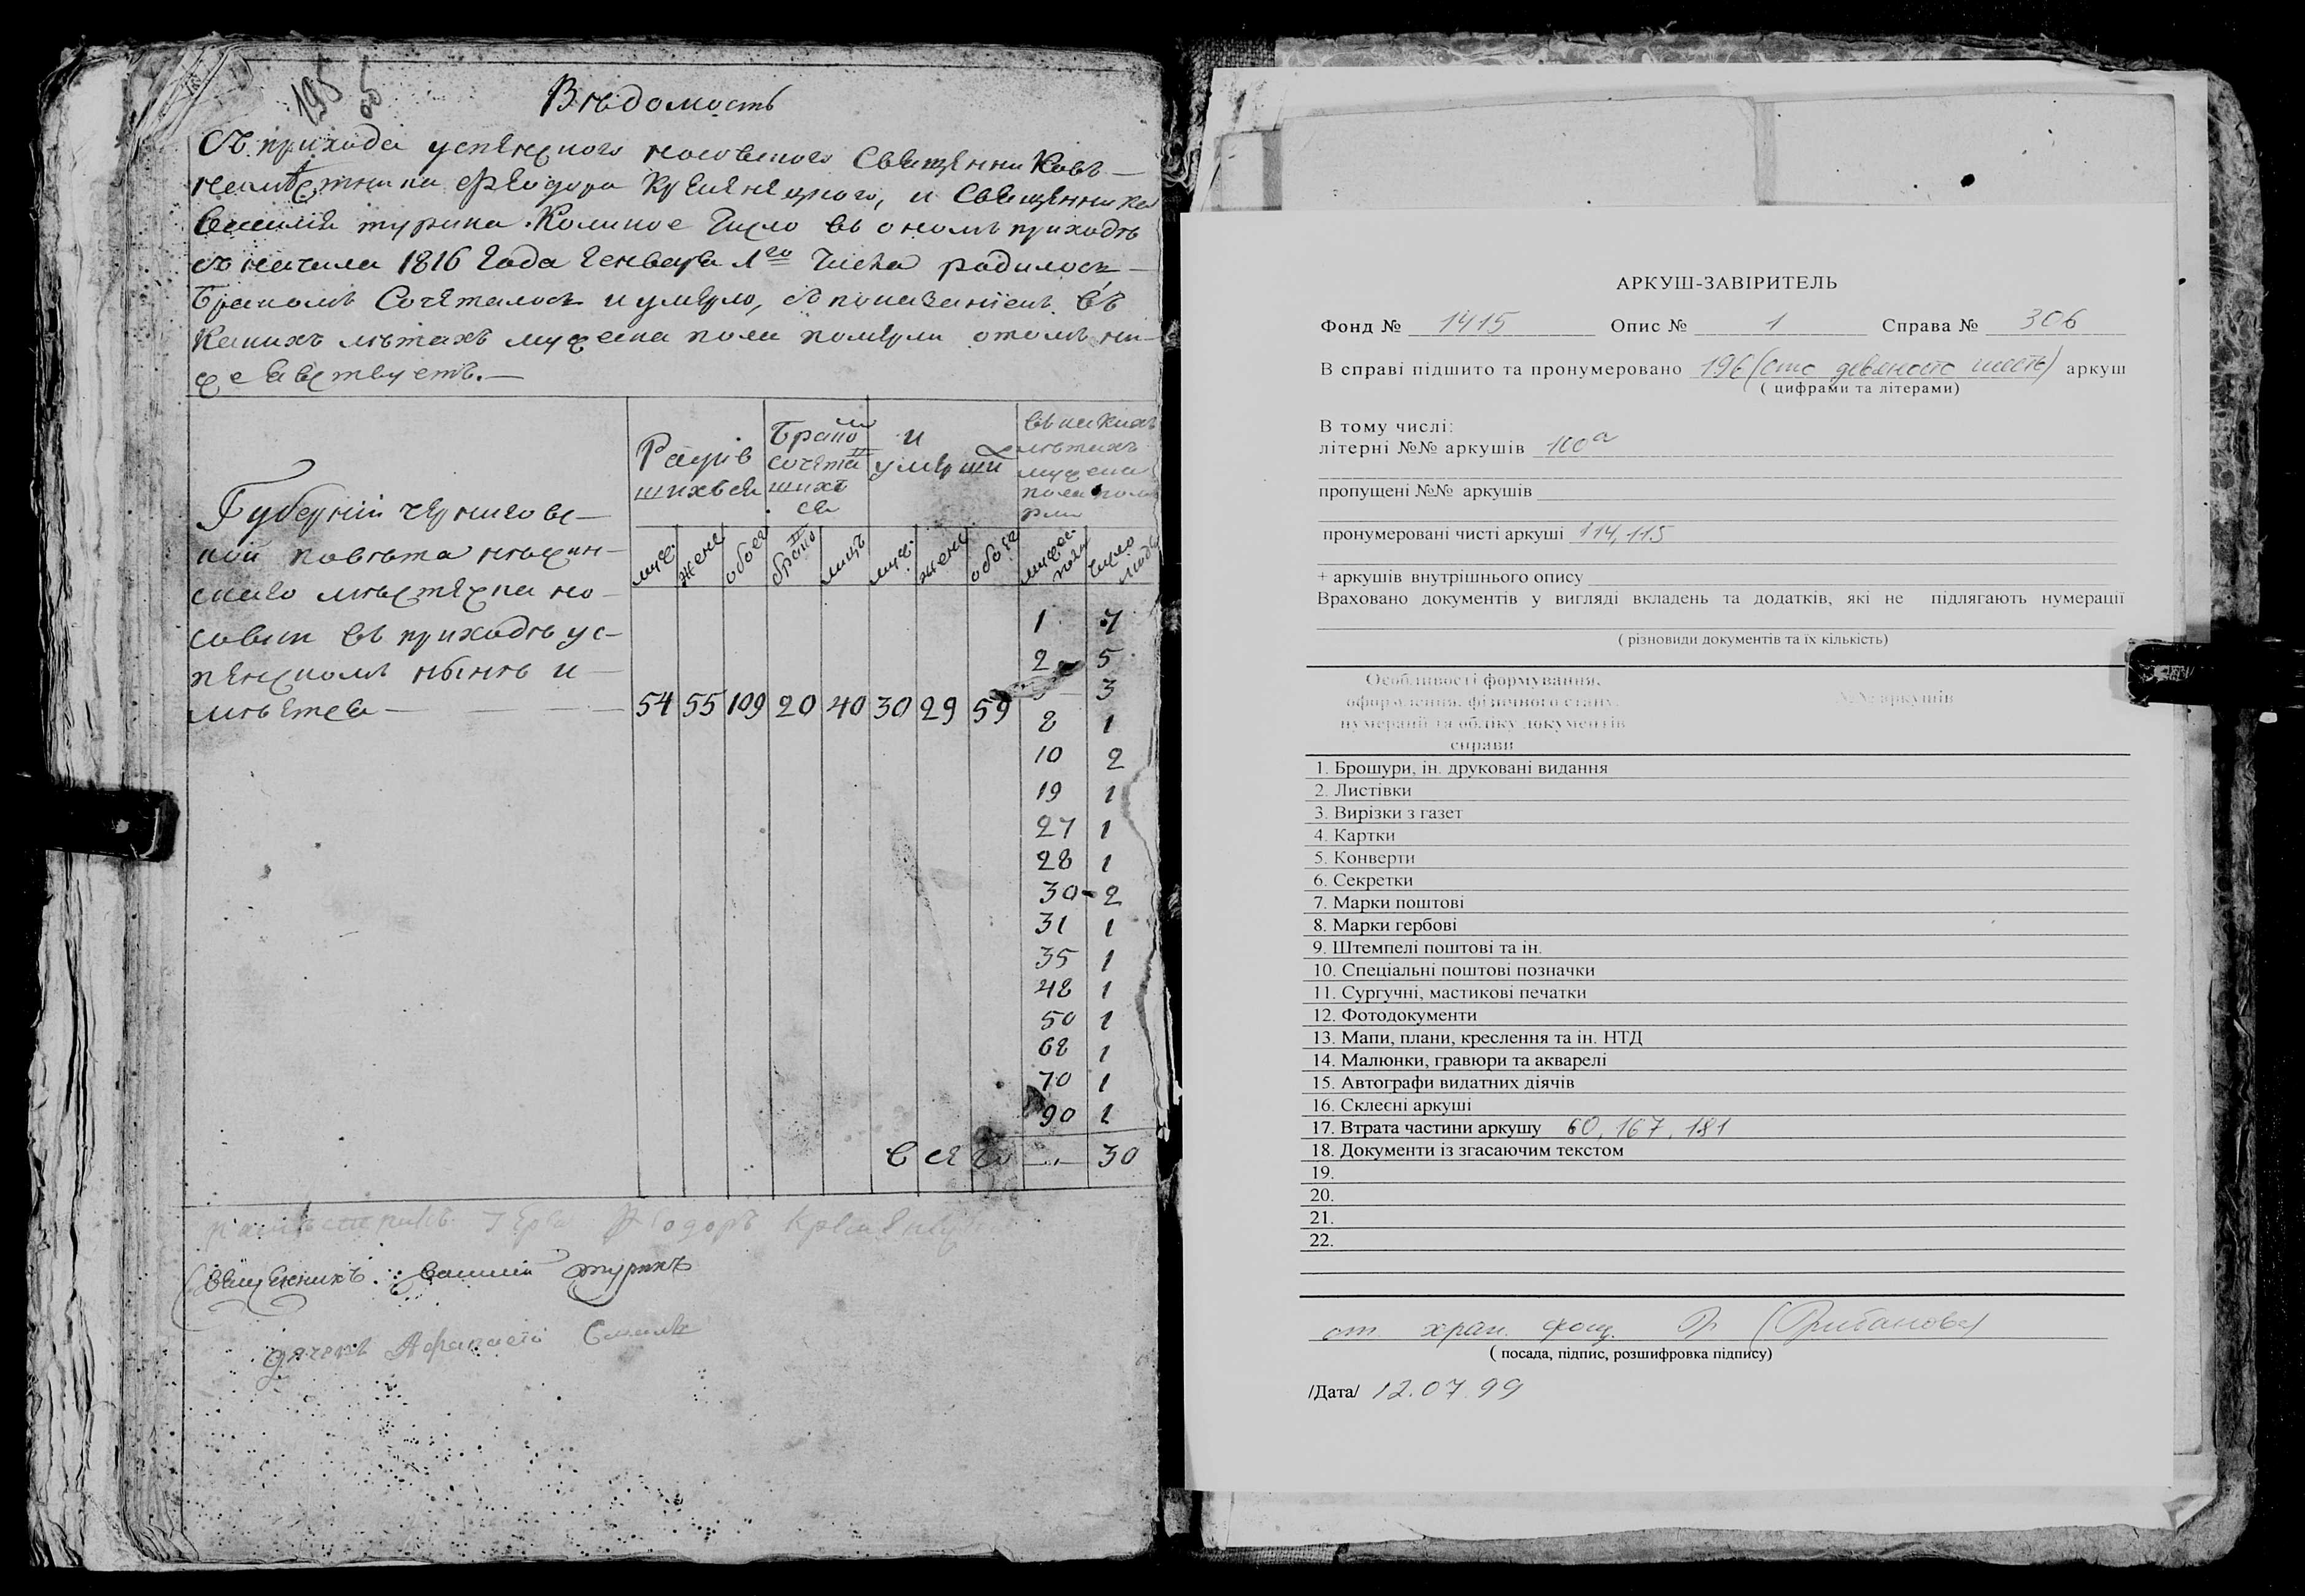 195
Вѣдомость
Съ прихода успенского носовского Священниковъ
намѣстника Феодора Кременецкого, и Священника
Василия турина. Коликое Число въ ономъ приходѣ
съ начала 1816 Года Генваря 1го Числа родилось
Бракомъ Сочеталось и умерло, съ показаніемъ въ
Какихъ лѣтахъ мужеска пола померли о томъ ни-
же явствуетъ.
Родив
шихься
Бракомъ
сочетав
шихъ
ся
и
умерши
въ какихъ
лѣтахъ
мужеска
пола пом
рли
Губерніи чернигов-
кой повѣта нѣжин-
скаго мѣстечка но-
совки въ приходѣ ус-
пенскомъ нынѣ и-
мѣется
муж. жене обоег брако лицъ муж. жене обоег мужес. пола Число людей
54 55 109 20 40 30 29 59
1 7
2 5
3
8 1
10 2
19 1
27 1
28 1
30 - 2
31 1
35 1
48 1
50 1
68 1
70 1
90 1
всего 30
намѣстникъ Іерей Феодоръ
Священникъ Василий туринъ
дячекъ Афанасій
АРКУШ-ЗАВІРИТЕЛЬ
Фонд № 1415 Опис № 1 Справа № 306
В справі підшито та пронумеровано 196 (сто девяносто шесть) аркуш
( цифрами та літерами)
В тому числі:
літерні №№ аркушів 100а
пропущені №№ аркушів
пронумеровані чисті аркуші 114, 115
+ аркушів внутрішнього опису
Враховано документів у вигляді вкладень та додатків, які не підлягають нумерації
( різновиди документів та їх кількість)
Особливості формування,
оформлення, фізичного стану,
нумерації та обліку документів
справи
№№ аркушів
1. Брошури, ін. друковані видання
2. Листівки
3. Вирізки з газет
4. Картки
5. Конверти
6. Секретки
7. Марки поштові
8. Марки гербові
9. Штемпелі поштові та ін.
10. Спеціальні поштові позначки
11. Сургучні, мастикові печатки
12. Фотодокументи
13. Мапи, плани, креслення та ін. НТД
14. Малюнки, гравюри та акварелі
15. Автографи видатних діячів
16. Склеєні аркуші
17. Втрата частини аркушу 60, 167, 181
18. Документи із згасаючим текстом
19.
20.
21.
22.
от. хран. фонд.
( посада, підпис, розшифровка підпису)
/Дата/ 12.07.99